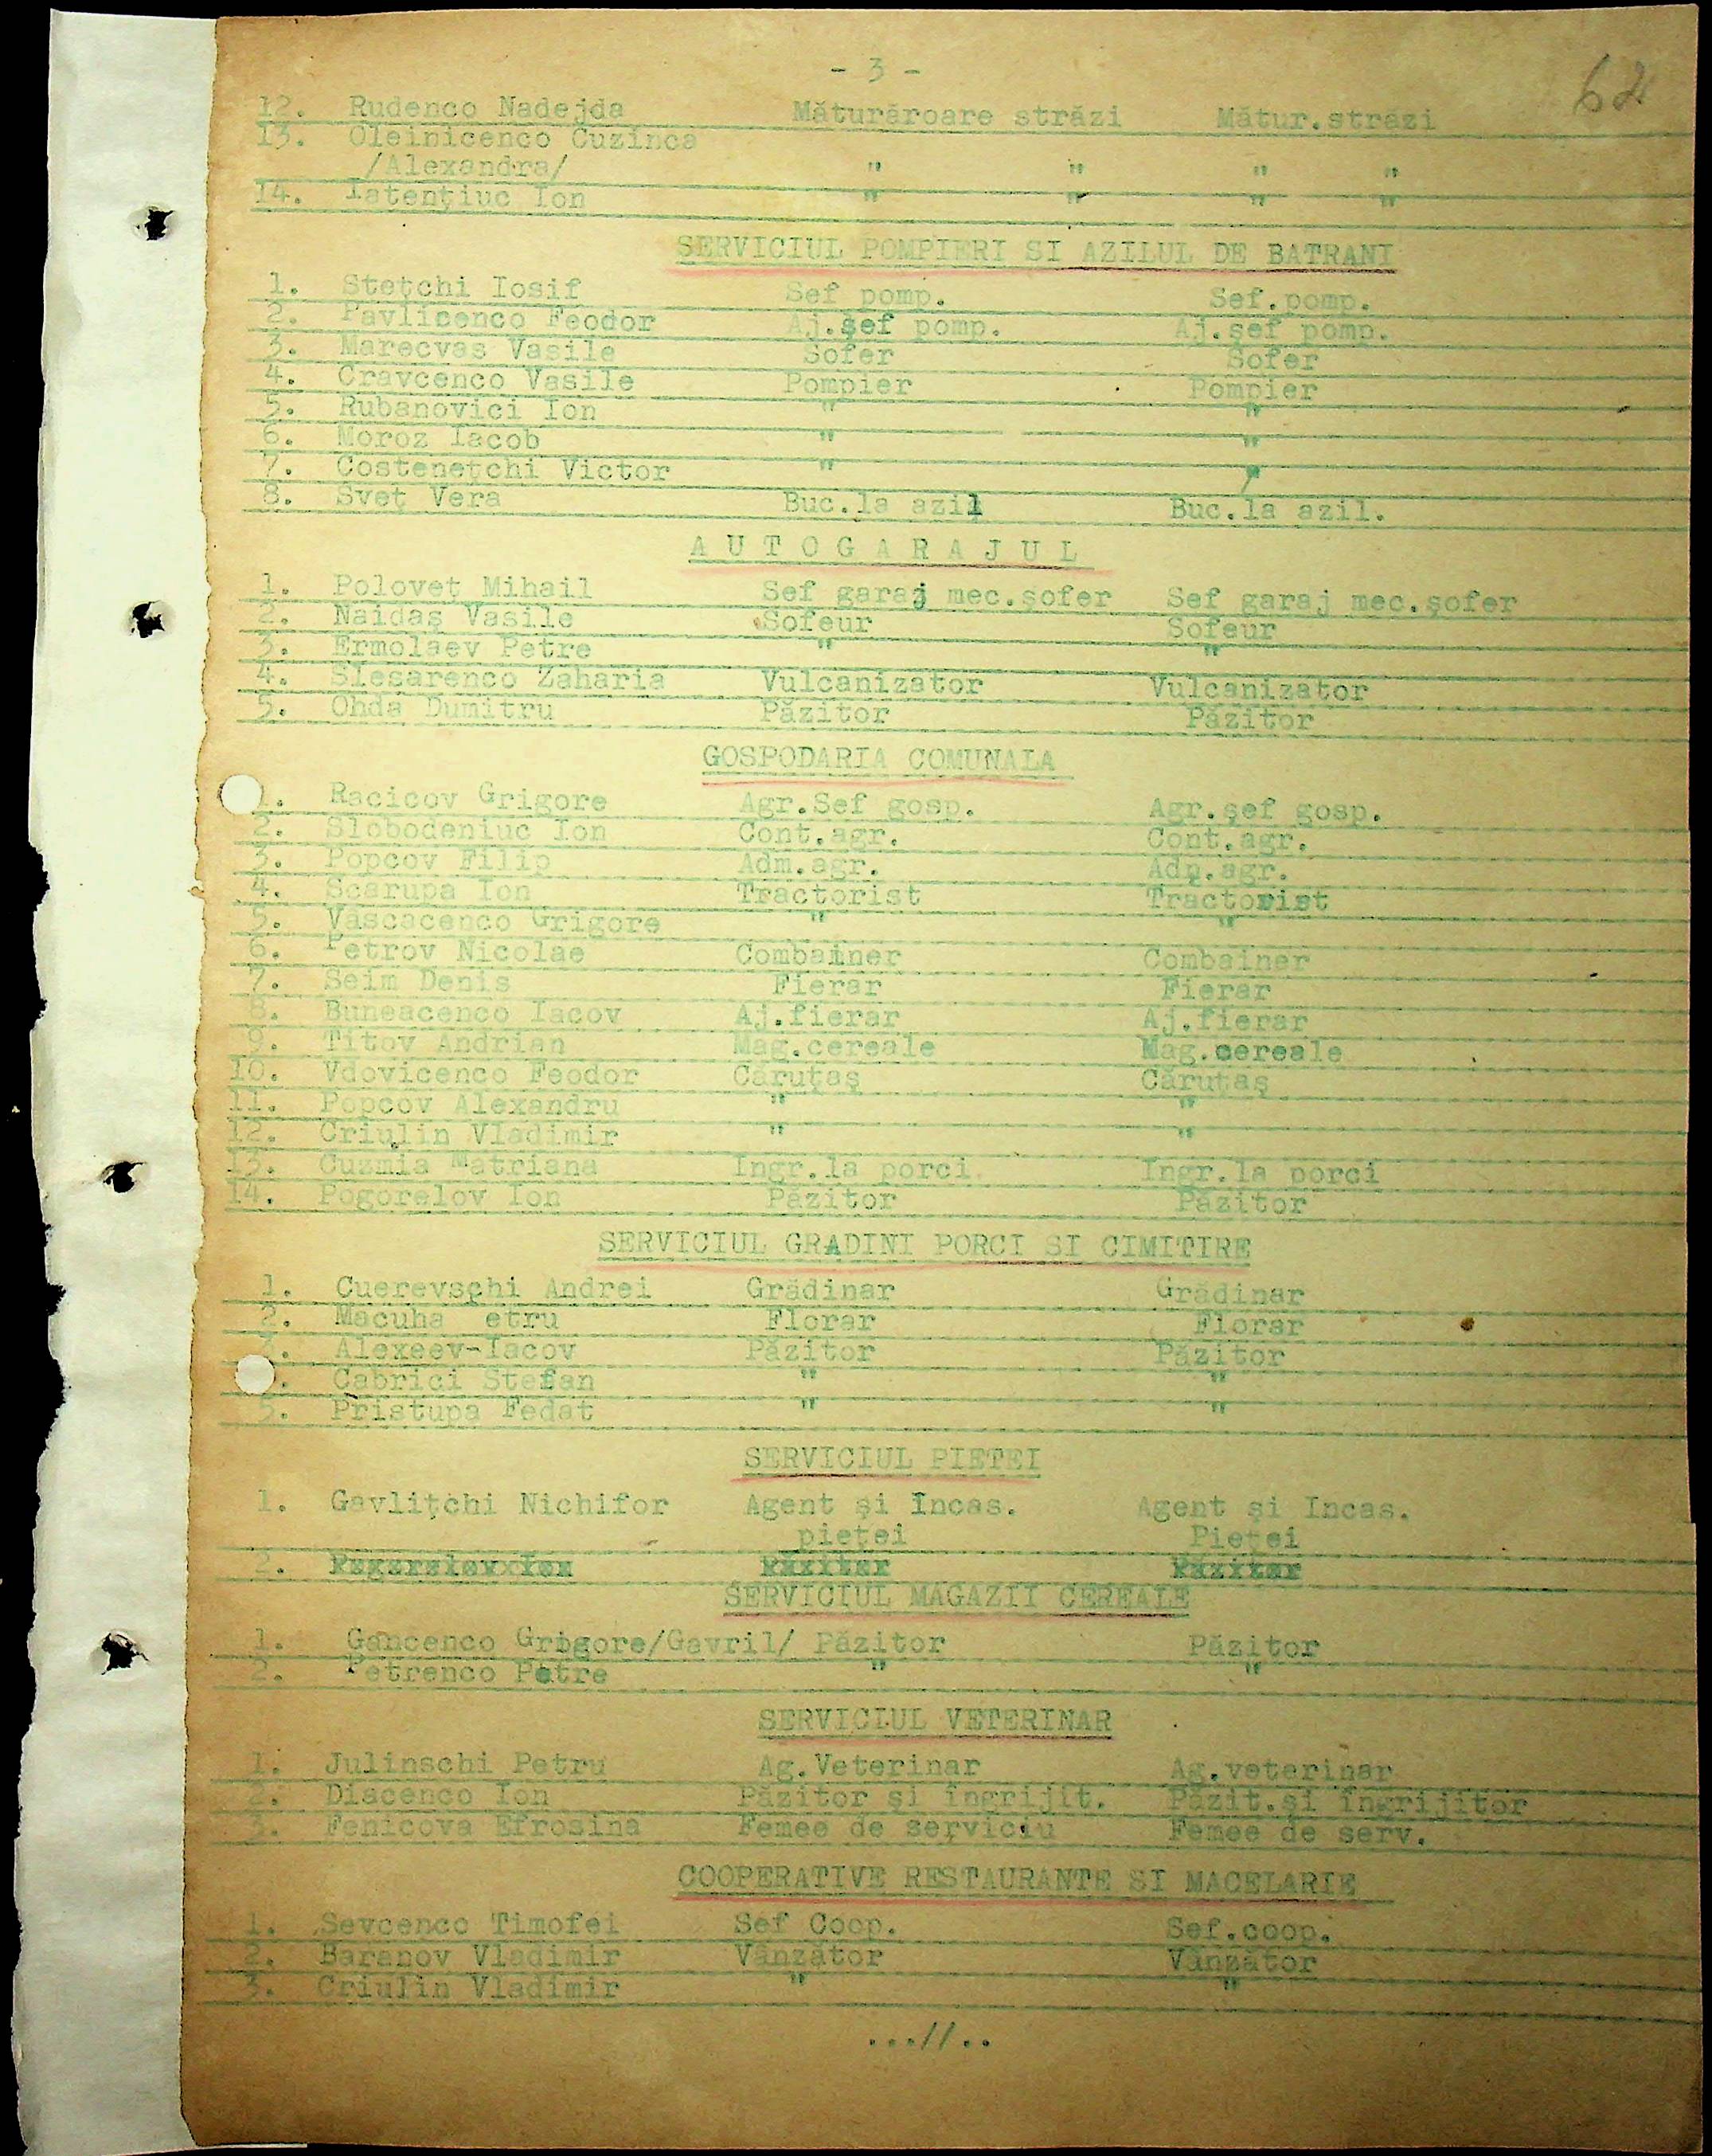 - 3 -
62
12. Rudenco Nadejda Măturăroare străzi Mătur.străzi
13. Oleinicenco Cuzinca
/Alexandra/ " " " "
14. Iatențiuc Ion " " " "
SERVICIUL POMPIERI SI AZILUL DE BATRANI
1. Stețchi Iosif Sef pomp. Sef.pomp.
2. Pavlicenco Feodor Aj.șef pomp. Aj.șef pomp.
3. Marecvas Vasile Sofer Sofer
4. Cravcenco Vasile Pompier Pompier
5. Rubanovici Ion " "
6. Moroz Iacob " "
7. Costenețchi Victor " "
8. Sveț Vera Buc.la azil Buc.la azil.
A U T O G A R A J U L
1. Poloveț Mihail Sef garaj mec.șofer Sef garaj mec.șofer
2. Naidaș Vasile Sofeur Sofeur
3. Ermolaev Petre " "
4. Slesarenco Zaharia Vulcanizator Vulcanizator
5. Ohda Dumitru Păzitor Păzitor
GOSPODARIA COMUNALA
1. Racicov Grigore Agr.Sef gosp. Agr.șef gosp.
2. Slobodeniuc Ion Cont.agr. Cont.agr.
3. Popcov Filip Adm.agr. Adm.agr.
4. Scarupa Ion Tractorist Tractorist
5. Vascacenco Grigore " "
6. Petrov Nicolae Combainer Combainer
7. Seim Denis Fierar Fierar
8. Buneacenco Iacov Aj.fierar Aj.fierar
9. Titov Andrian Mag.cereale Mag.cereale
10. Vdovicenco Feodor Căruțaș Căruțaș
11. Popcov Alexandru " "
12. Criulin Vladimir " "
13. Cuzmia Matriana Ingr.la porci Ingr.la porci
14. Pogorelov Ion Păzitor Păzitor
SERVICIUL GRADINI PORCI SI CIMITIRE
1. Cuerevschi Andrei Grădinar Grădinar
2. Macuha etru Florar Florar
3. Alexeev-Iacov Păzitor Păzitor
. Cabrici Stefan " "
5. Pristupa Fedat " "
SERVICIUL PIETEI
1. Gavlițchi Nichifor Agent și Incas. Agent și Incas.
pieței Pieței
2. Pogorelov Ion Păzitor Păzitor
SERVICIUL MAGAZII CEREALE
1. Gancenco Grigore/Gavril/ Păzitor Păzitor
2. Petrenco Petre " "
SERVICIUL VETERINAR
1. Julinschi Petru Ag.Veterinar Ag.veterinar
2. Diacenco Ion Păzitor și îngrijit. Păzit.și îngrijitor
3. Fenicova Efrosina Femee de serviciu Femee de serv.
COOPERATIVE RESTAURANTE SI MACELARIE
1. Sevcenco Timofei Sef Coop. Sef.coop.
2. Baranov Vladimir Vânzător Vânzător
3. Criulin Vladimir " "
...//..